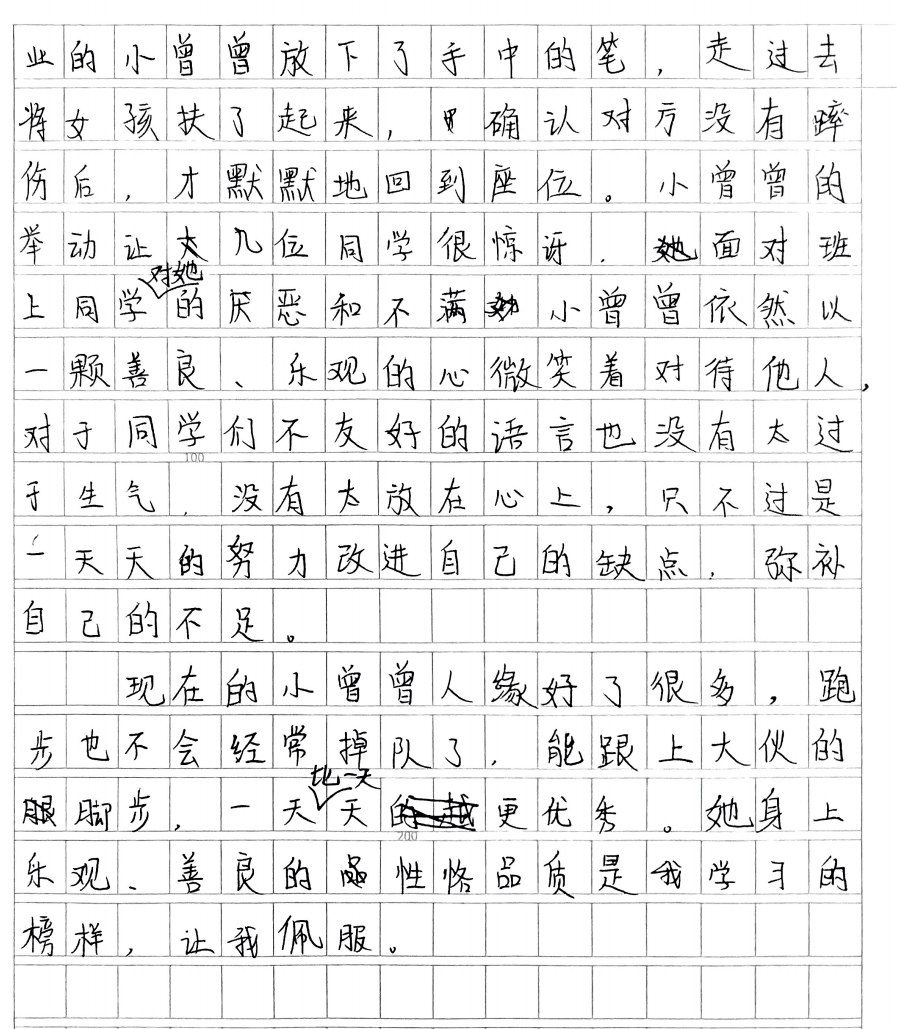 业的小曾曾放下了手中的笔，走过去
将女孩扶了起来，确认对方没有蹿
伤后，才默默地回到座位。小曾曾的
举动让大几位同学很惊讶，她面对班
对她
上同学的厌恶和不满小曾曾依然以
一颗善良、乐观的心微笑着对待他人，
对于同学们不友好的语言也没有太过
100
于生气，没有太放在心上，只不过是
一天天的努力改进自己的缺点，弥补
自己的不足。
现在的小曾曾人缘好了很多，跑
步也不会经常掉队了，能跟上大伙的
比一天
脚步，一天天更优秀。她身上
200
乐观、善良的性恪品质是我学习的
榜样，让我佩服。